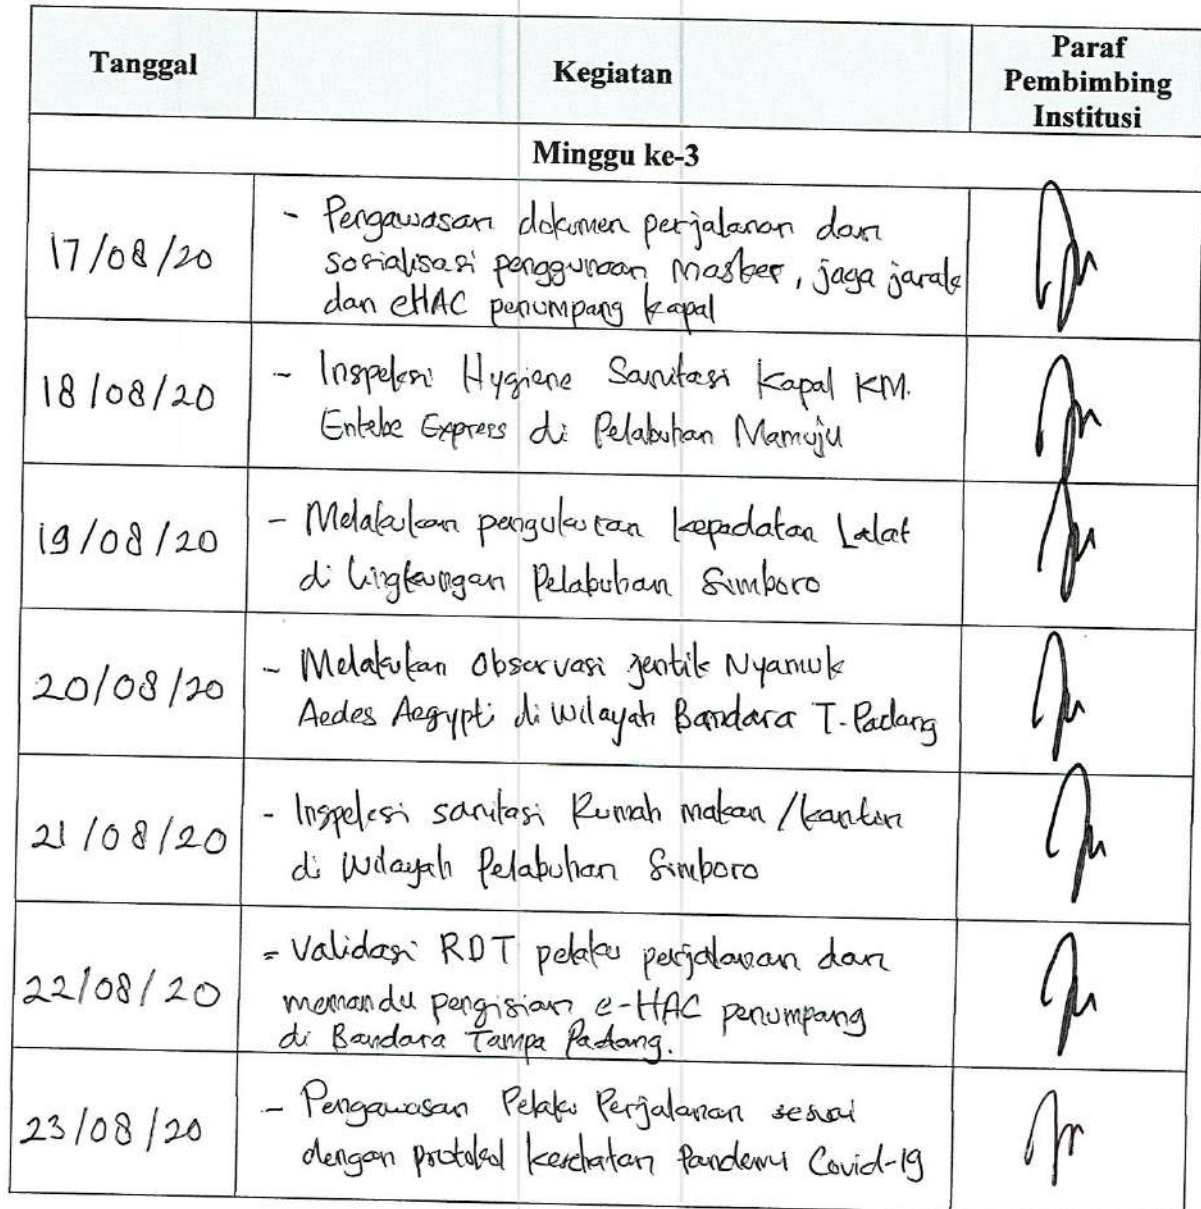 Tanggal
Kegiatan
Paraf
Pembimbing
Institusi
Minggu ke-3
17/08/20
- Pengawasan dokumen perjalanan dan
sosialisasi penggunaan masker, jaga jarak
dan eHAC penumpang kapal
18/08/20
- Inspeksi Hygiene Sanitasi Kapal KM.
Entebe Express di Pelabuhan Mamuju
19/08/20
- Melakukan pengukuran kepadatan Lalat
di lingkungan Pelabuhan Simboro
20/08/20
- Melakukan Observasi jentik Nyamuk
Aedes Aegypti di wilayah Bandara T-Padang
21/08/20
- Inspeksi sanitasi Rumah makan/kantin
di Wilayah Pelabuhan Simboro
22/08/20
- Validasi RDT pelaku perjalanan dan
memandu pengisian e-HAC penumpang
di Bandara Tampa Padang.
23/08/20
- Pengawasan Pelaku Perjalanan sesuai
dengan protokol kesehatan Pandemi Covid-19